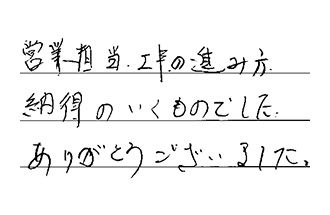 営業担当.工事の進み方.
納得のいくものでした.
ありがとうございました。